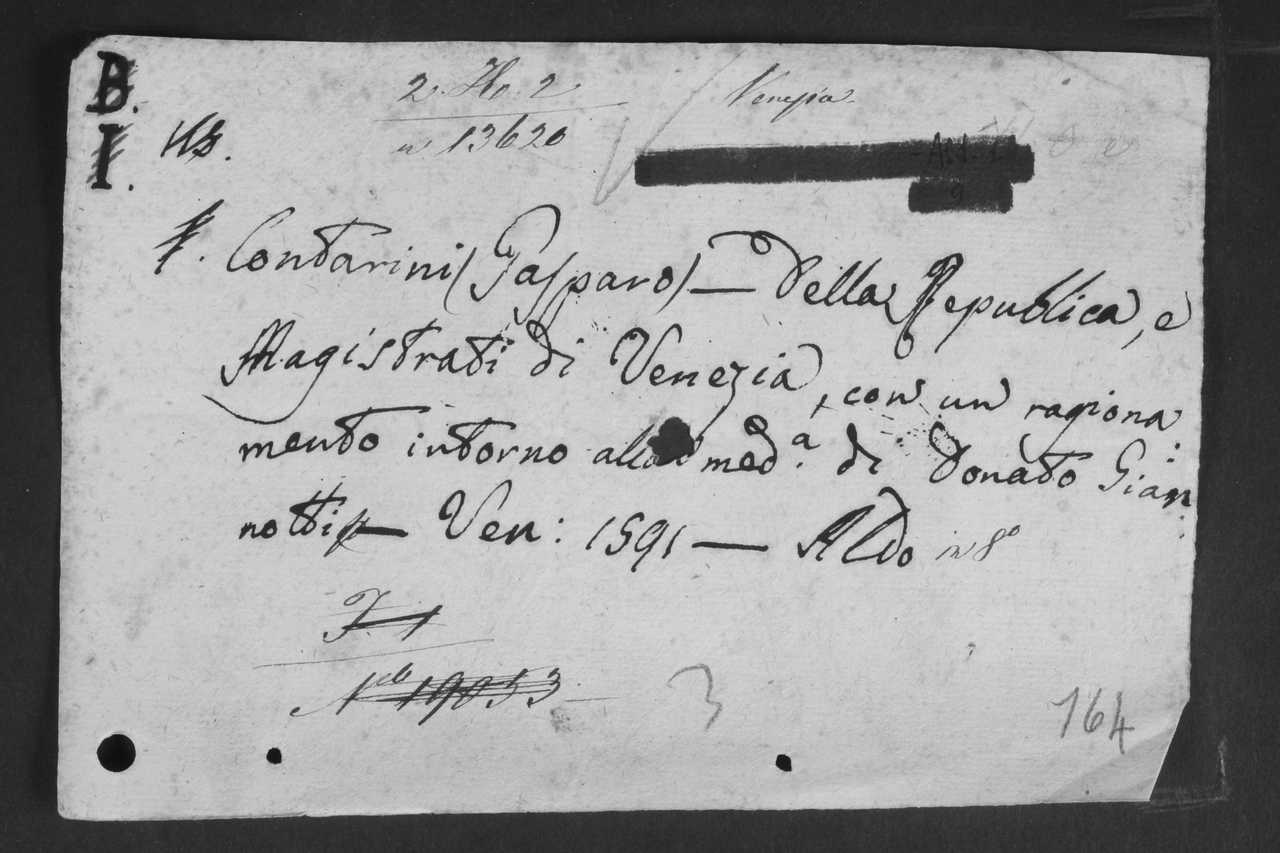 B.
I.
2. Ho. 2
Venezia.
n 13620
Contarini (Gasparo) — Della Republica, e
Magistrati di Venezia, con un ragiona
mento intorno alla med.ª di Donato Gian
notti — Ven: 1591 — Aldo in 8º
F 1
N 19853
3
164